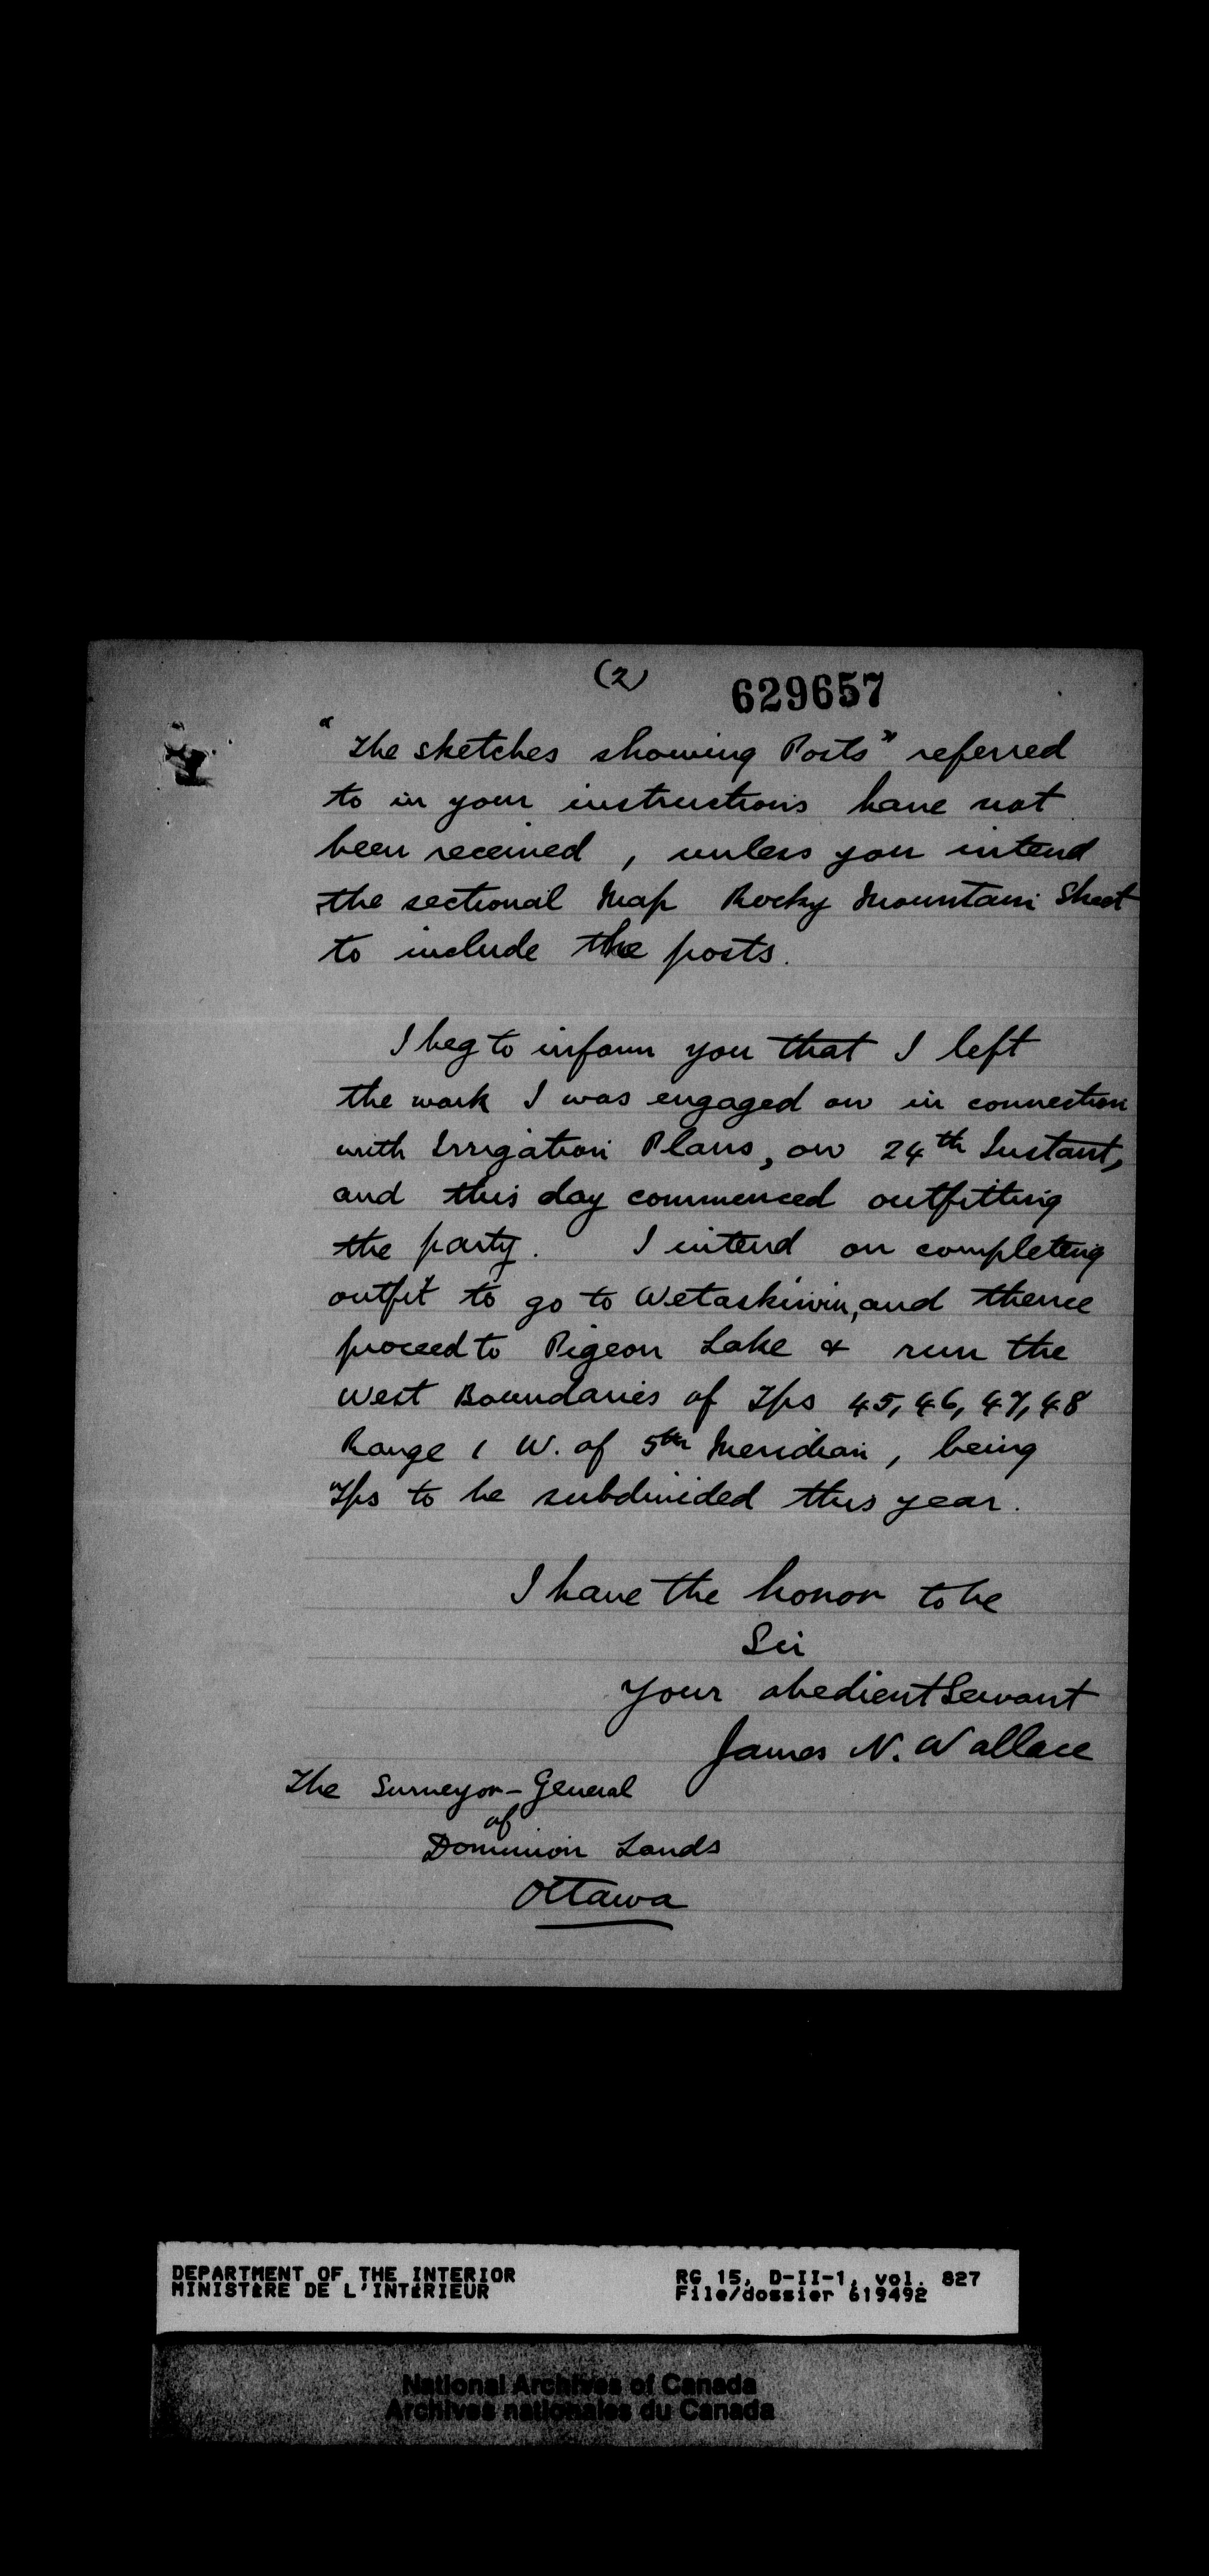 (2)
629657
"The sketches showing Posts" referred
to in your instructions have not
been received, unless you intend
the sectional Map Rocky Mountain Sheet
to include the posts.
I beg to inform you that I left
the work I was engaged on in connection
with Irrigation Plans, on 24th Instant,
and this day commenced outfitting
the party. I intend on completing
outfit to go to Wetaskiwin, and thence
proceed to Pigeon Lake & run the
West Boundaries of Tps 45, 46, 47, 48
Range 1 W. of 5th Meridian, being
Tps to be subdivided this year.
I have the honor to be
Sir
Your obedient Servant
James N. Wallace
The Surveyor-General
of
Dominion Lands
Ottawa
DEPARTMENT OF THE INTERIOR RG 15, D-II-1, vol. 827
MINISTÈRE DE L'INTÉRIEUR File/dossier 619492
National Archives of Canada
Archives nationales du Canada